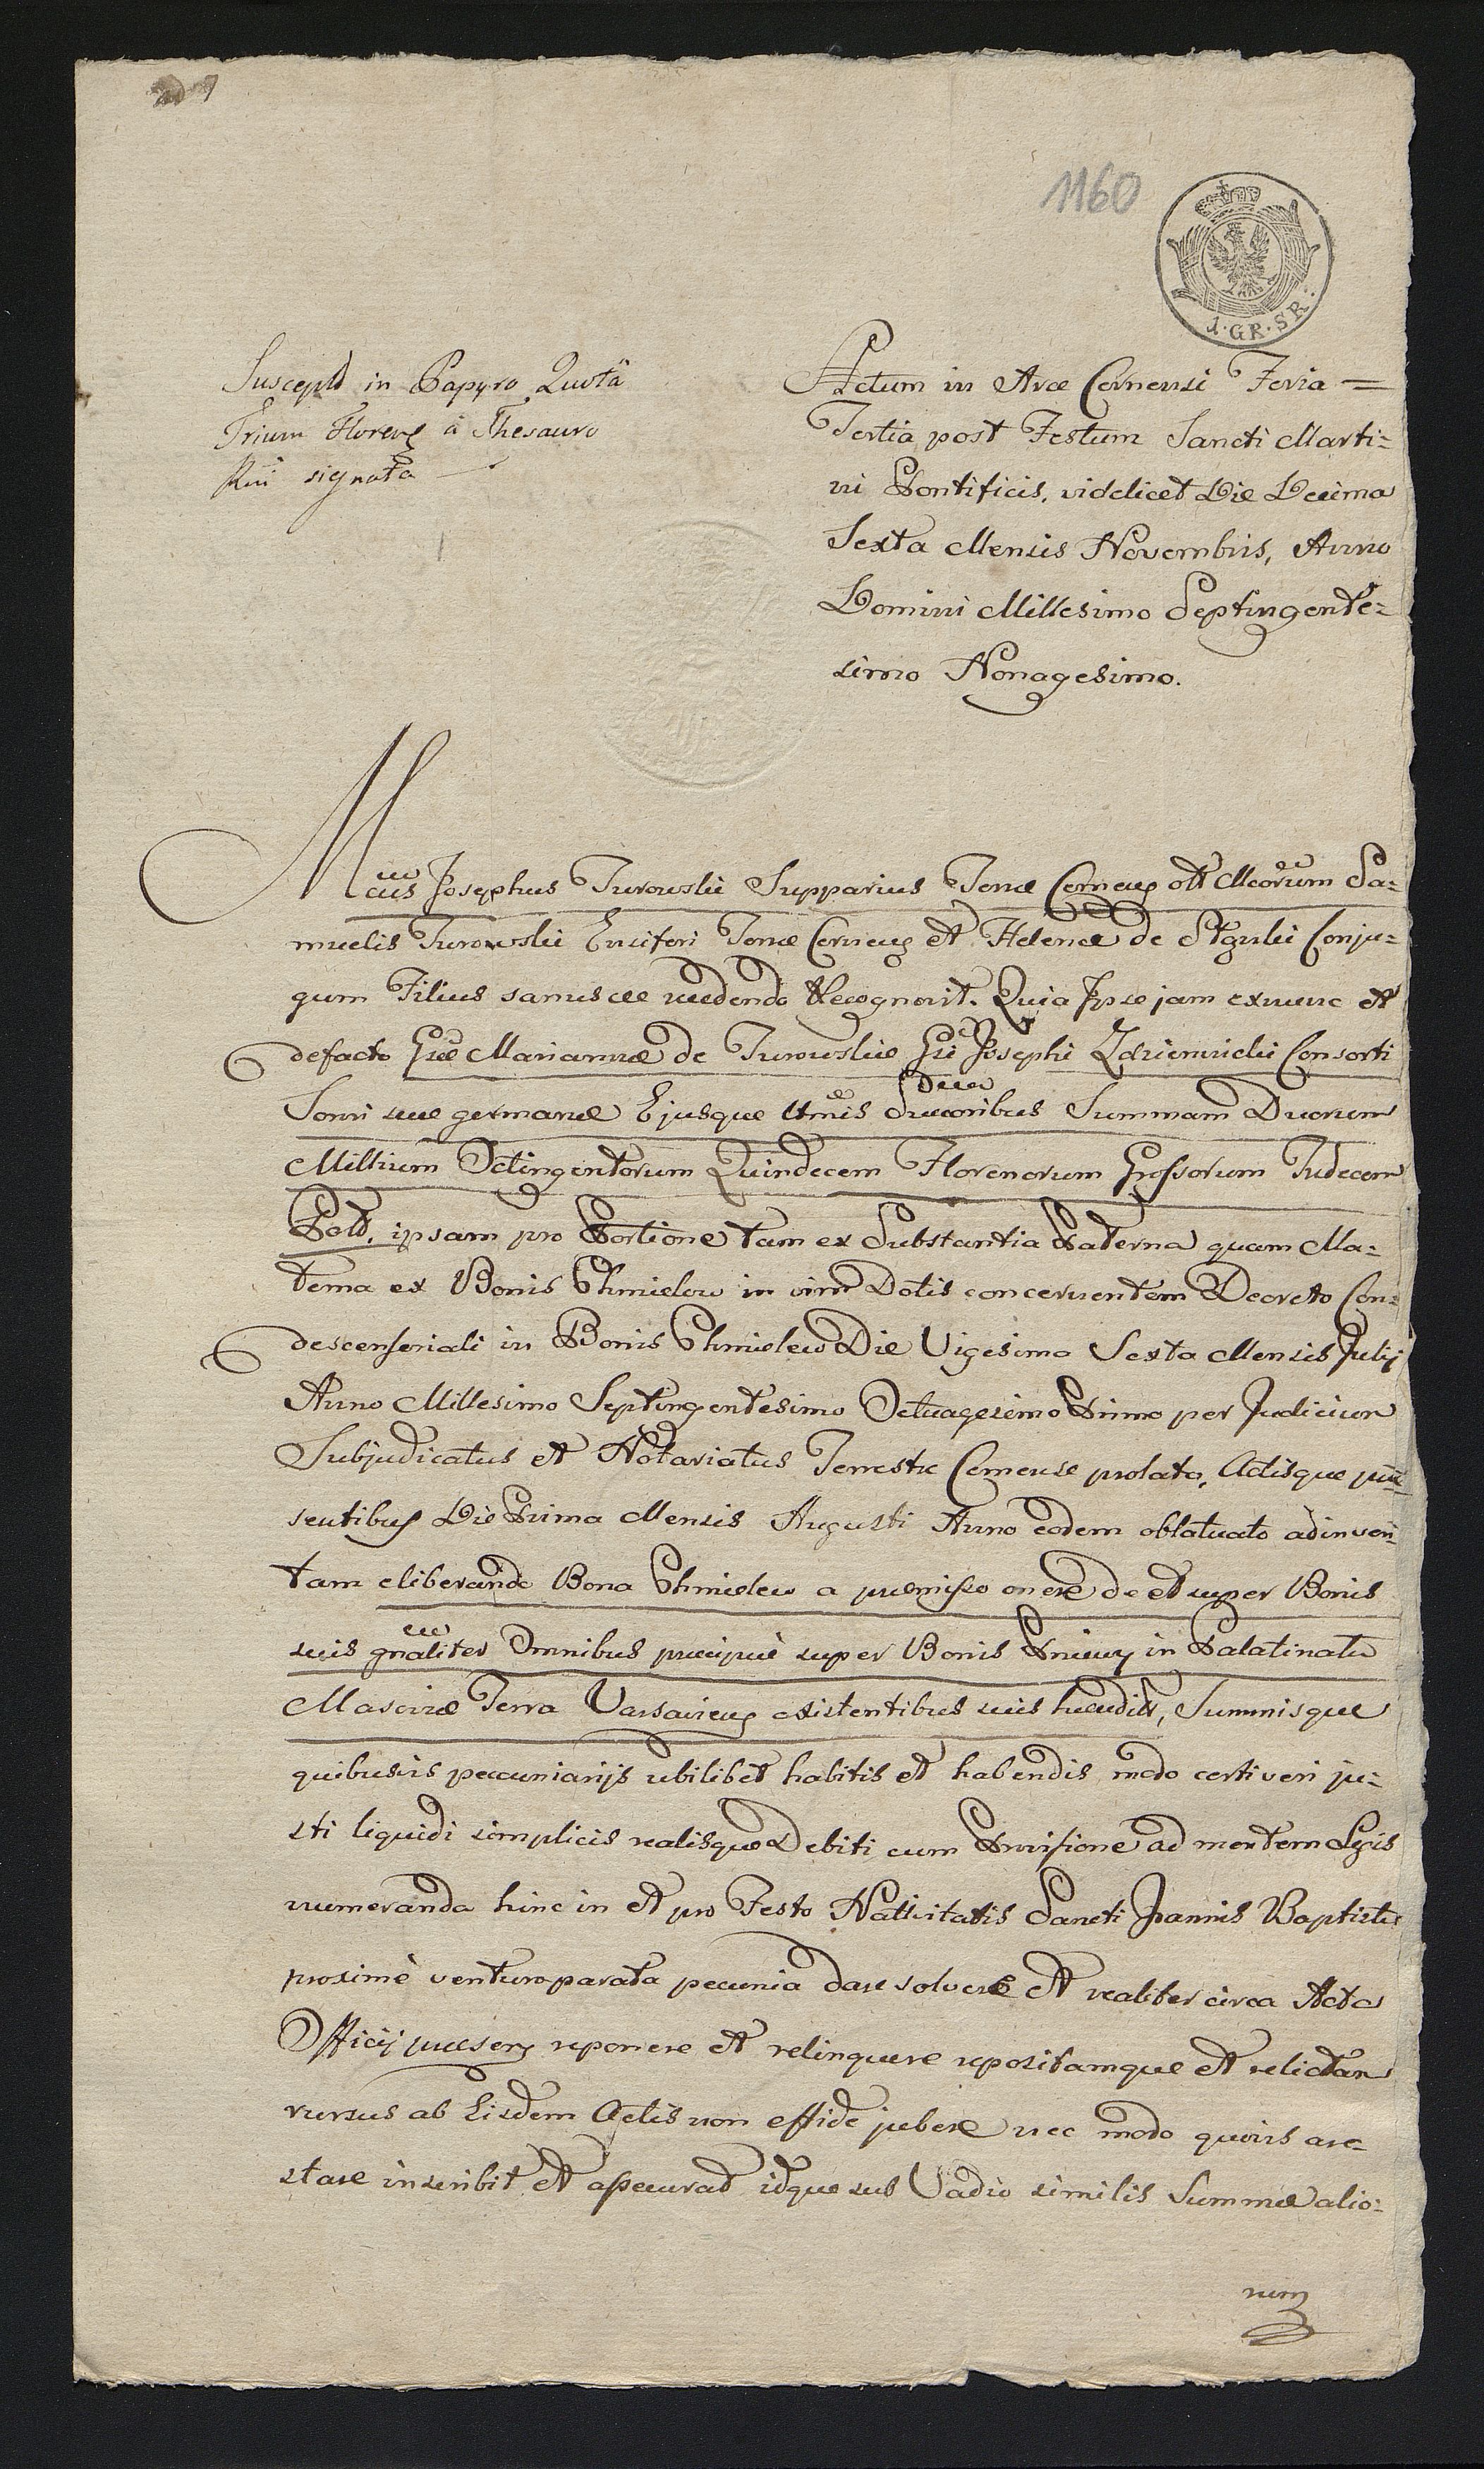 ad 1
1160
1·GR·SR:
Suscept in Papyro Quota
Trium Floren à Thesauro
Rni signata
Actum in Arce Cernensi Feria =
Tertia post Festum Sancti Marti=
ni Pontificis, videlicet Die Decima
Sexta Mensis Novembris, Anno
Domini Millesimo Septingente=
simo Nonagesimo.
Mcus Josephus Turowski Supparius Terræ Cernen olt Mcorum Sa=
muelis Turowski Ensiferi Terræ Cernen et Helenæ de Conju=
gum Filius sanus etc. recedendo Recognovit. Quia Ipse jam exnunc et
defacto Gsæ Mariannæ de Turowskie Gsi Josephi Zdziennicki Consorti
Sorori suæ germanæ Ejusque ltmis Succoribus Summam Duorum
Millium Octingentorum Quindecem Florenorum Grossorum Tudecem
Polt. ipsam pro Portione tam ex Substantia Paterna quam Ma=
terna ex Bonis Chmielew in vim Dotis concernentem Decreto Con=
descensoriali in Bonis Chmielew Die Vigesima Sexta Mensis Julij
Anno Millesimo Septingentesimo Octuagesimo Primo per Judicium
Subjudicatus et Notariatus Terrestre Cernense prolato, Actisque præ
sentibus Die Prima Mensis Augusti Anno eodem oblatuato adinven=
tam eliberando Bona Chmielew a præmisso onere de et super Bonis
suis gnaliter Omnibus præcipuè super Bonis in Palatinatu
Masoviæ Terra Varsavien existentibus suis hæredit, Summisque
quibusvis pecuniarijs ubilibet habitis et habendis modo certi veri ju=
sti liquidi simplicis realisque Debiti cum Provisione ad mentem Legis
numeranda hinc in et pro Festo Nativitatis Sancti Joannis Baptistæ
proximè venturo parata pecunia dare solvere et realiter circa Acta
Officij præsen reponere et relinquere repositamque et relictam
rursus ab Eisdem Actis non effide jubere nec modo quovis are=
stare inscribit et assecurat idque sub Vadio similis Summæ alio=
rum